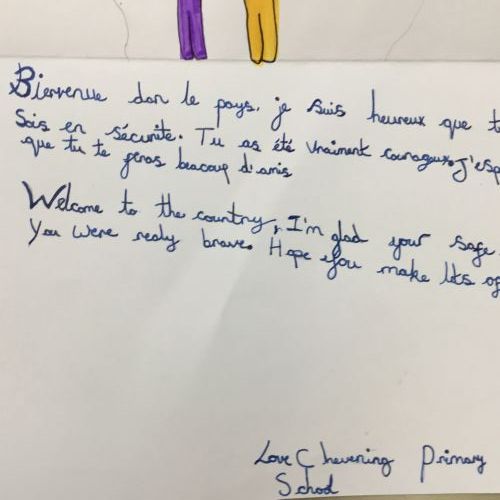 Bienvenue dan le pays, je suis heureux que t
Sois en sécurité. Tu as été vraiment courageux. J'esp
que tu te feras beacoup d'amis
Welcome to the country, I'm glad your safe
You were realy brave. Hope you make lots of
Love Chevening Primary
School